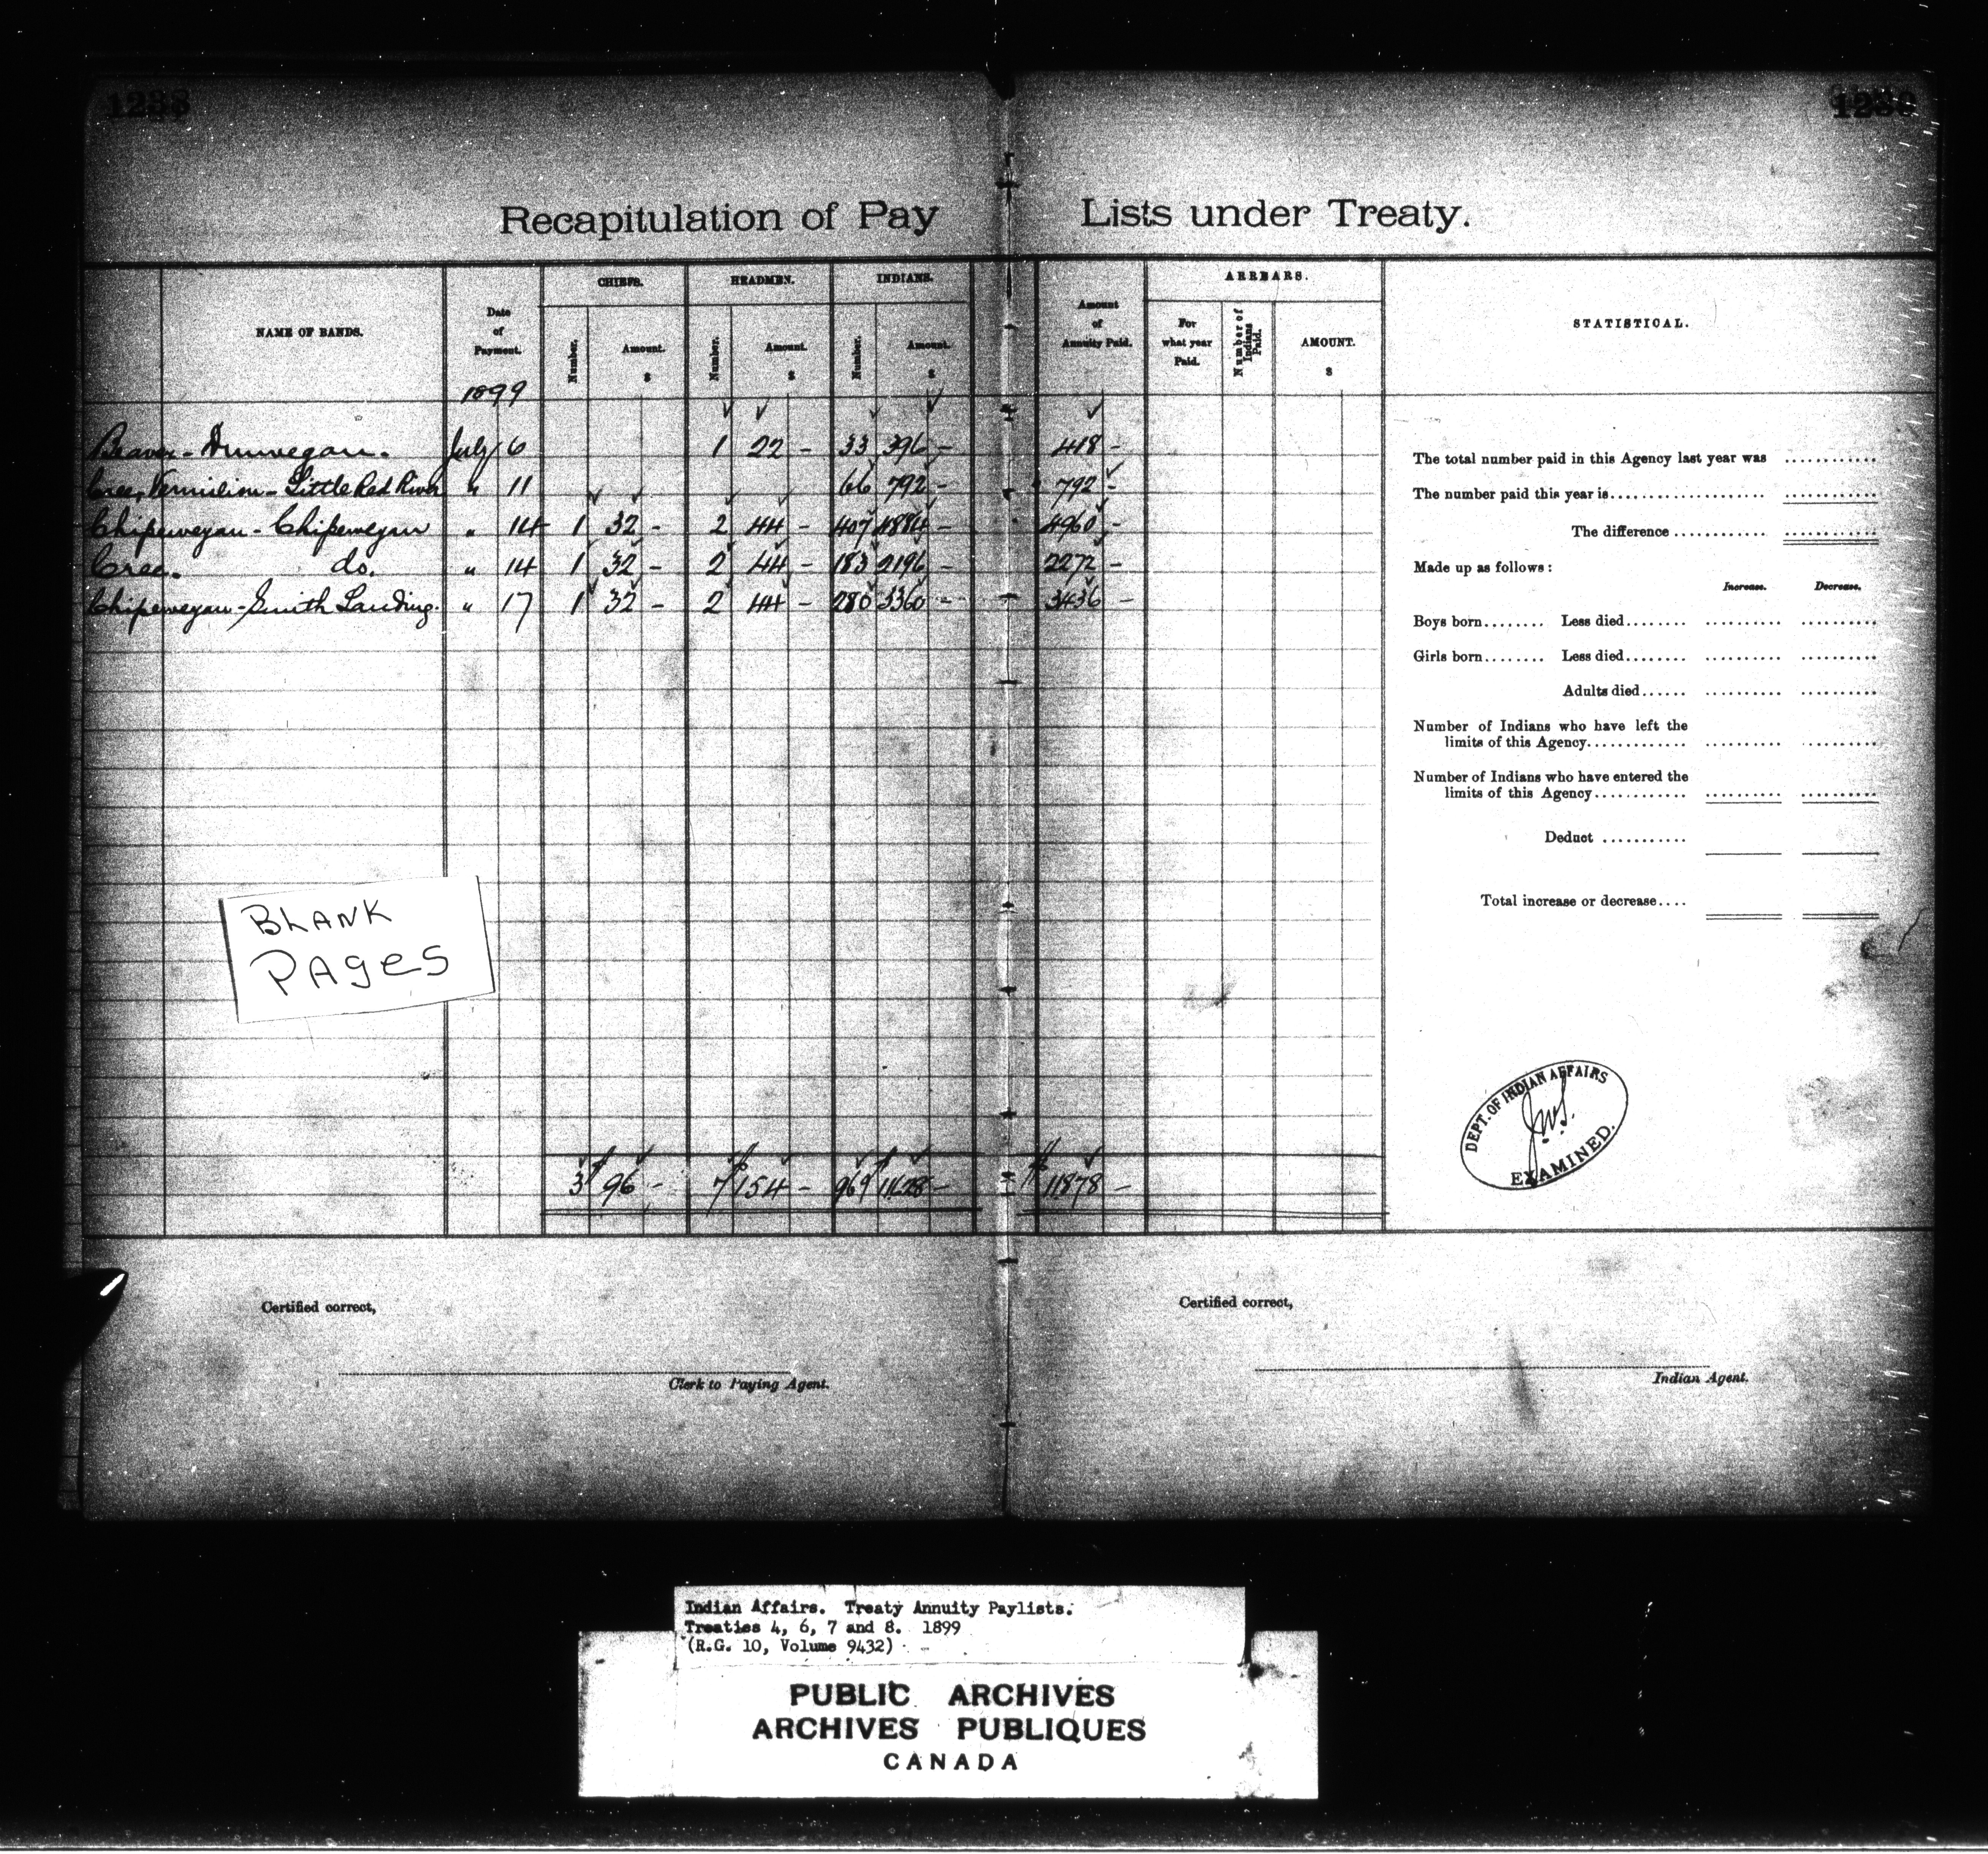 1238
1238
Recapitulation of Pay Lists under Treaty.
NAME OF BANDS.
Date of Payment.
1899
CHIEFS.
Number.
Amount.
$
HEADMEN.
Number.
Amount.
$
INDIANS.
Number.
Amount.
$
Amount of Annuity Paid.
ARREARS.
For what year Paid.
Number of Indians Paid.
AMOUNT.
$
STATISTICAL.
Beaver - Dunvegan. July 6 1 22 - 33 396 - 418 -
Cree, Vermilion - Little Red River " 11 66 792 - 792 -
Chipewegan - Chipewegan " 14 1 32 - 2 44 - 407 4884 - 4960 -
Cree. do. " 14 1 32 - 2 44 - 183 2196 - 2272 -
Chipewegan - Smith Landing. " 17 1 32 - 2 44 - 280 3360 - 3436 -
3 $ 96 - 7 $ 154 - 969 $ 11628 - $ 11878 -
The total number paid in this Agency last year was ............
The number paid this year is....................
The difference ............
Made up as follows:
Increase. Decrease.
Boys born........ Less died........
Girls born........ Less died........
Adults died......
Number of Indians who have left the
limits of this Agency.............
Number of Indians who have entered the
limits of this Agency............
Deduct ...........
Total increase or decrease....
BLANK
PAGES
DEPT. OF INDIAN AFFAIRS
EXAMINED.
Certified correct,
Clerk to Paying Agent.
Certified correct,
Indian Agent.
Indian Affairs. Treaty Annuity Paylists.
Treaties 4, 6, 7 and 8. 1899
(R.G. 10, Volume 9432)
PUBLIC ARCHIVES
ARCHIVES PUBLIQUES
CANADA